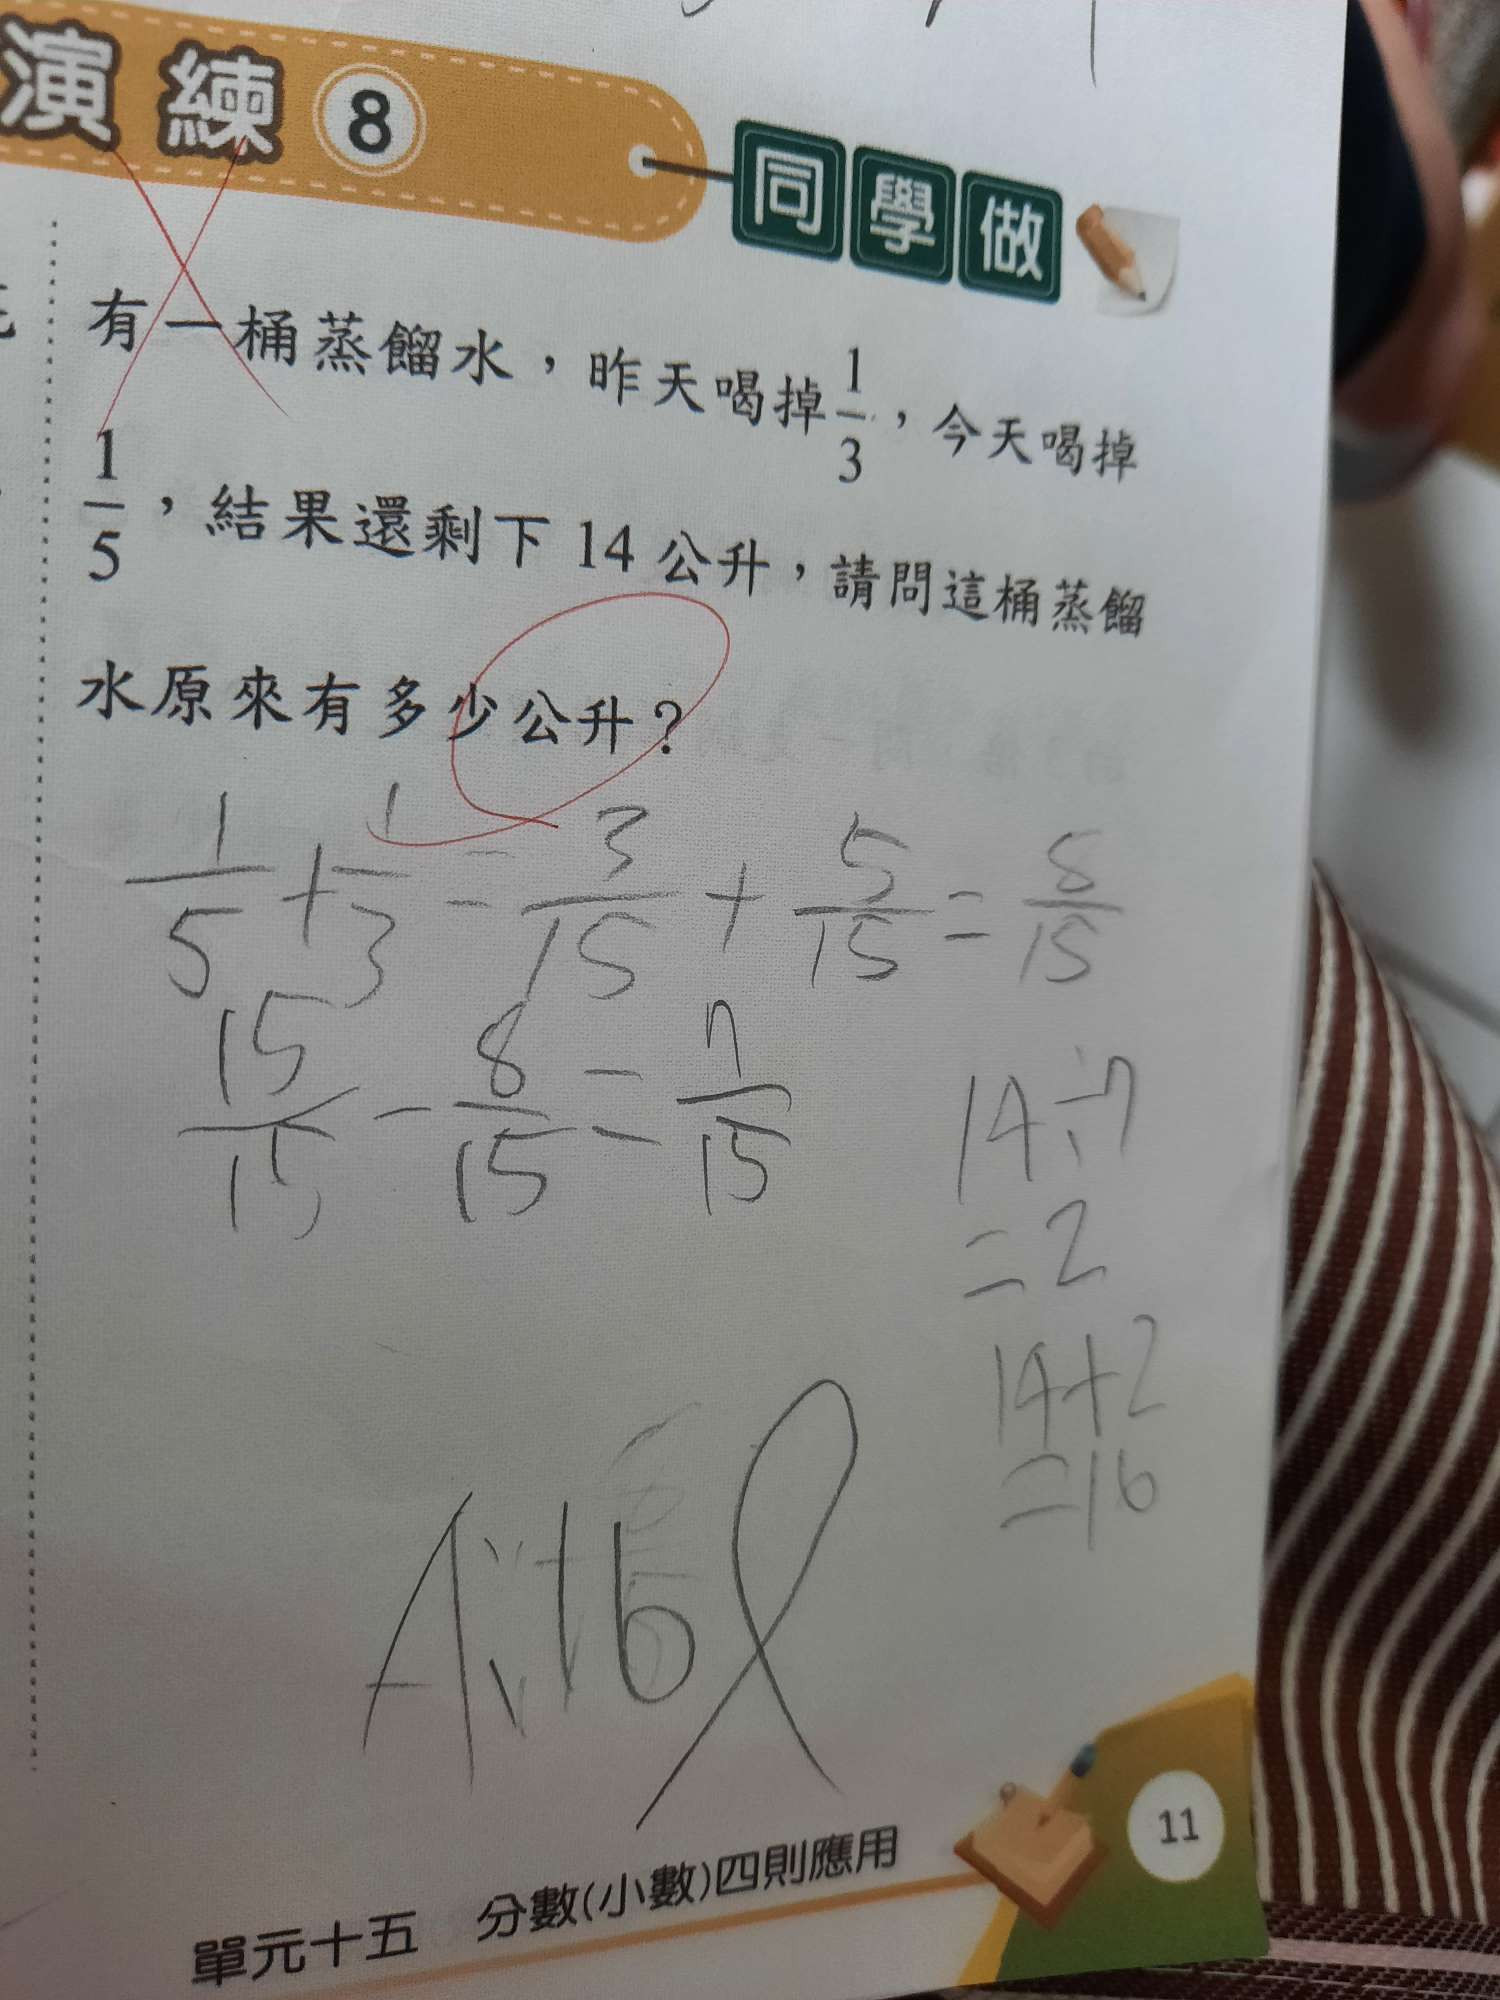 演練 8 同學做
有一桶蒸餾水，昨天喝掉1/3，今天喝掉
1/5，結果還剩下14公升，請問這桶蒸餾
水原來有多少公升？
1/5+1/3=3/15+5/15=8/15
15/15-8/15=7/15
14÷7
=2
14+2
=16
A:16ℓ
單元十五 分數(小數)四則應用
11